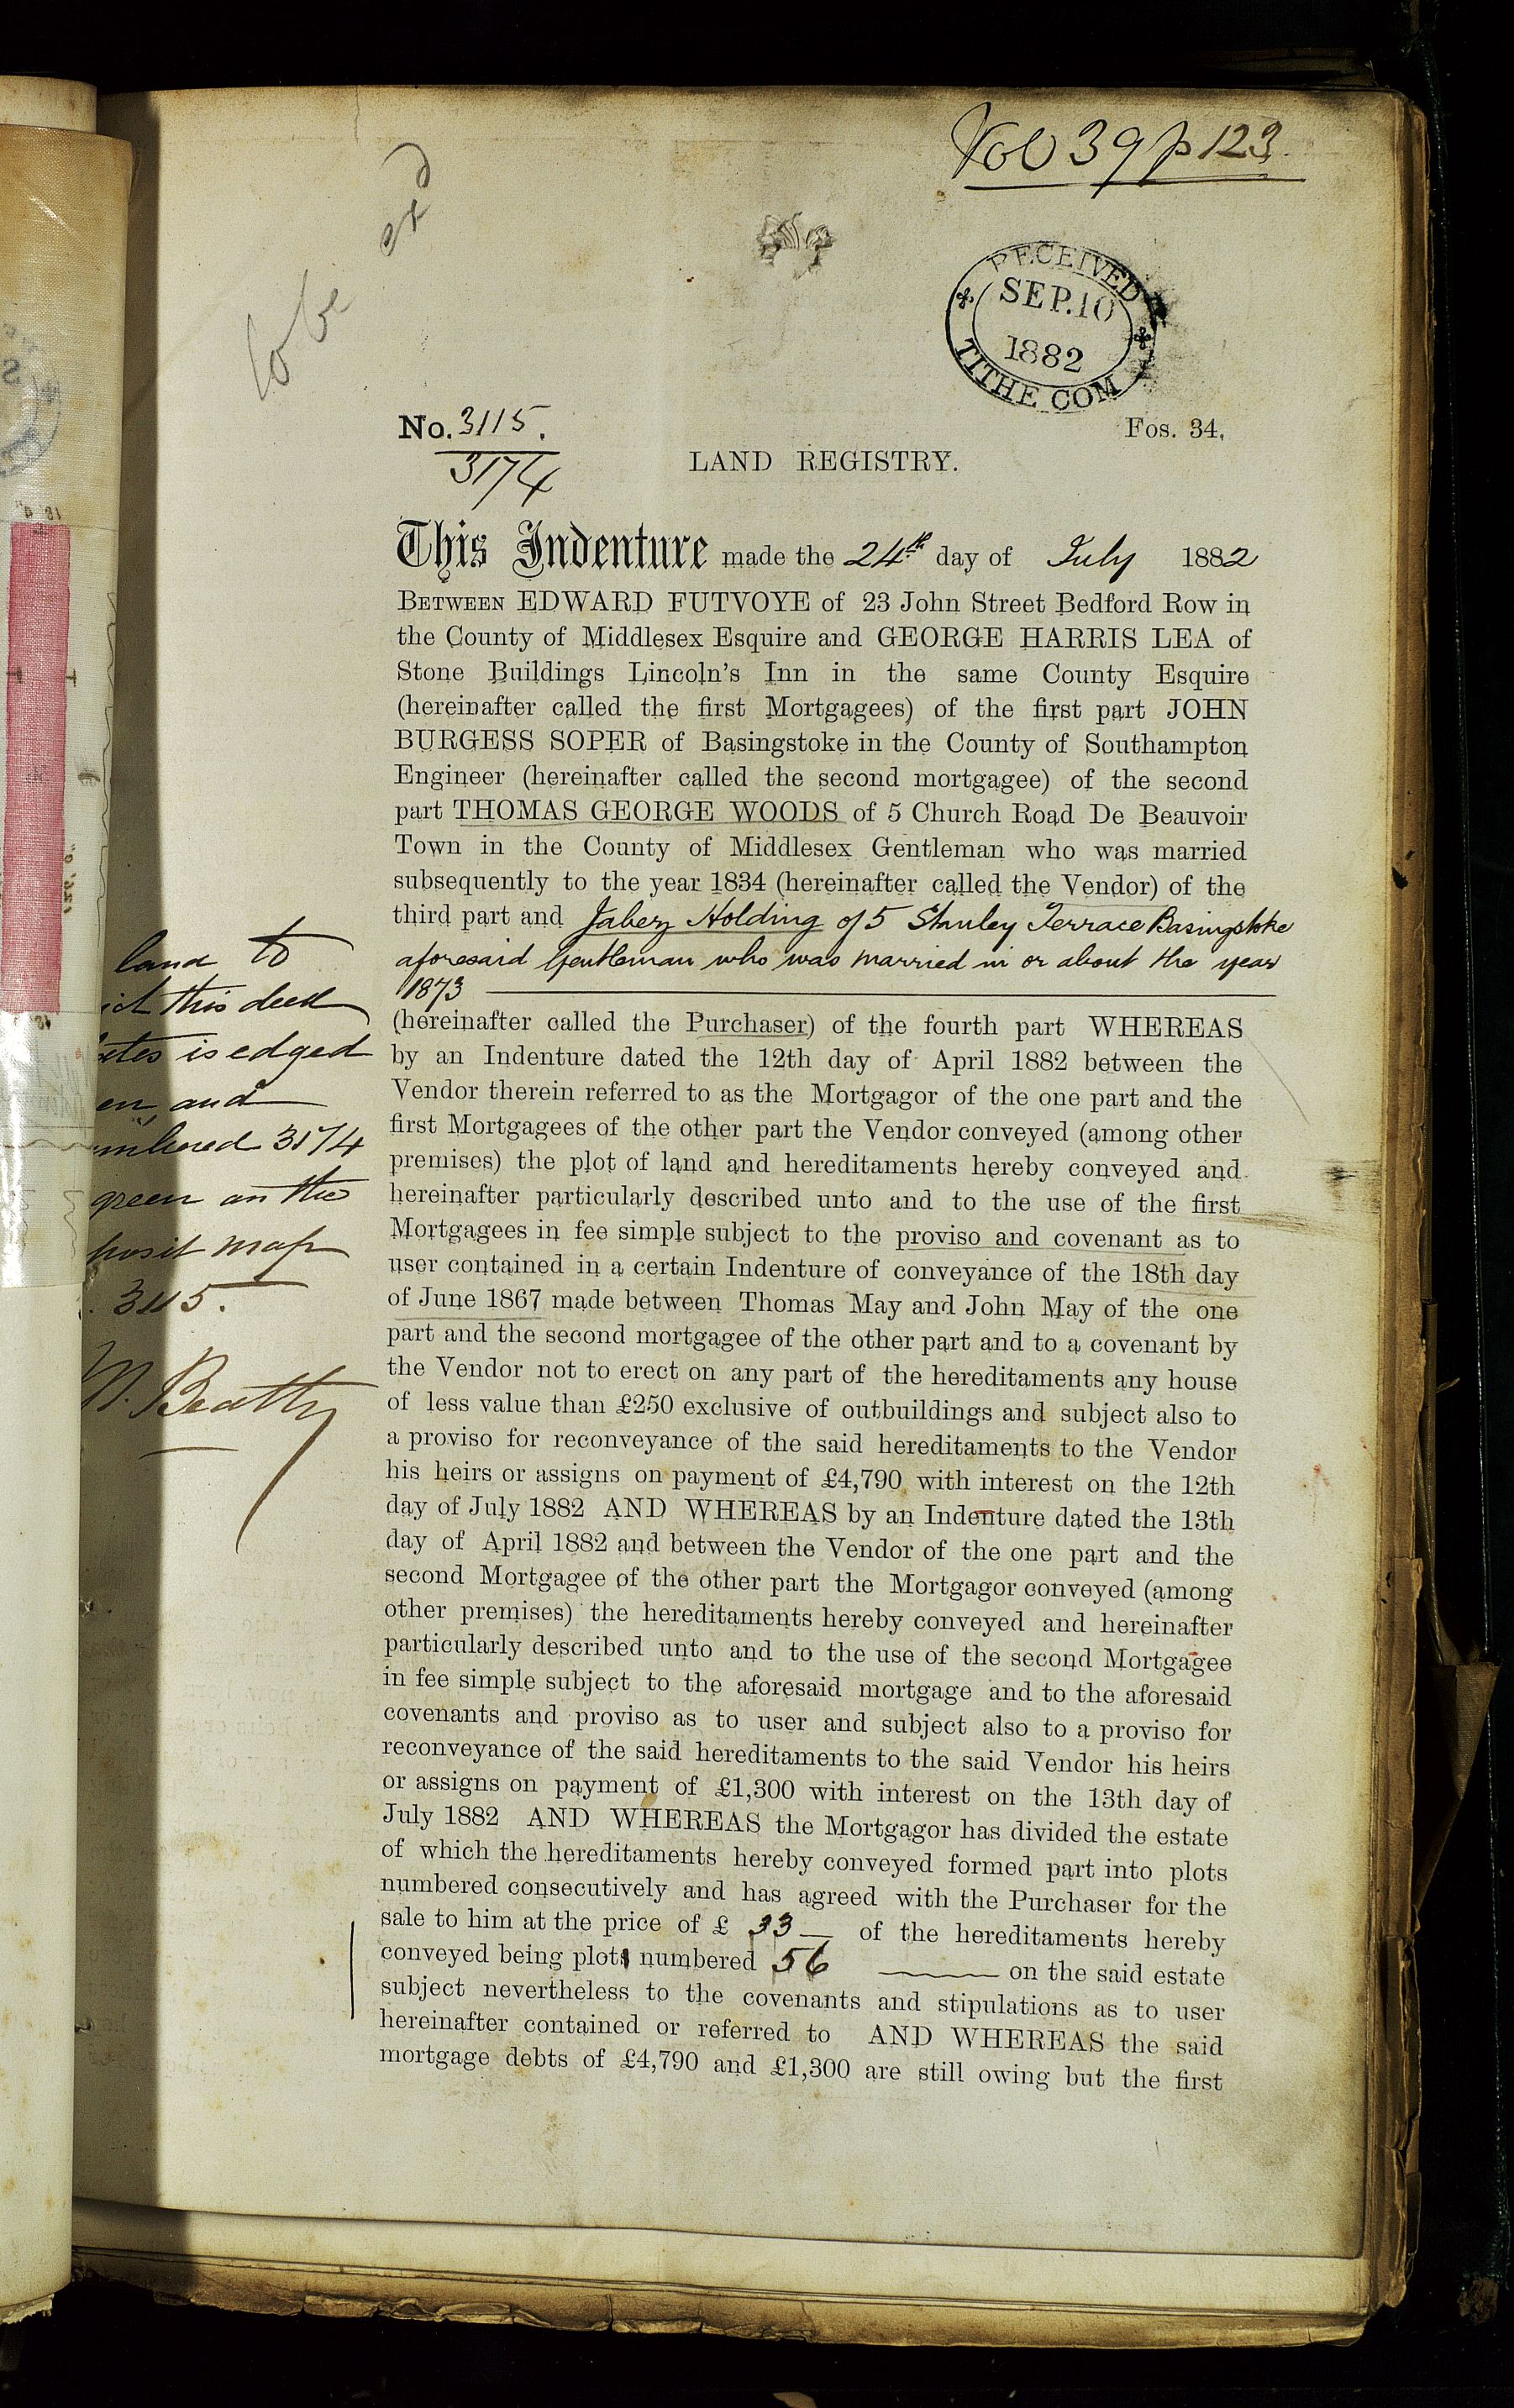 Vol 39 p 123.
to be exd
RECEIVED
SEP.10
1882
TITHE COM
No. 3115.
3174
Fos. 34.
LAND REGISTRY.
This Indenture made the 24th day of July 1882
BETWEEN EDWARD FUTVOYE of 23 John Street Bedford Row in
the County of Middlesex Esquire and GEORGE HARRIS LEA of
Stone Buildings Lincoln's Inn in the same County Esquire
(hereinafter called the first Mortgagees) of the first part JOHN
BURGESS SOPER of Basingstoke in the County of Southampton
Engineer (hereinafter called the second mortgagee) of the second
part THOMAS GEORGE WOODS of 5 Church Road De Beauvoir
Town in the County of Middlesex Gentleman who was married
subsequently to the year 1834 (hereinafter called the Vendor) of the
third part and Jabez Holding of 5 Stanley Terrace Basingstoke
aforesaid Gentleman who was married in or about the year
1873
(hereinafter called the Purchaser) of the fourth part WHEREAS
by an Indenture dated the 12th day of April 1882 between the
Vendor therein referred to as the Mortgagor of the one part and the
first Mortgagees of the other part the Vendor conveyed (among other
premises) the plot of land and hereditaments hereby conveyed and
hereinafter particularly described unto and to the use of the first
Mortgagees in fee simple subject to the proviso and covenant as to
user contained in a certain Indenture of conveyance of the 18th day
of June 1867 made between Thomas May and John May of the one
part and the second mortgagee of the other part and to a covenant by
the Vendor not to erect on any part of the hereditaments any house
of less value than £250 exclusive of outbuildings and subject also to
a proviso for reconveyance of the said hereditaments to the Vendor
his heirs or assigns on payment of £4,790 with interest on the 12th
day of July 1882 AND WHEREAS by an Indenture dated the 13th
day of April 1882 and between the Vendor of the one part and the
second Mortgagee of the other part the Mortgagor conveyed (among
other premises) the hereditaments hereby conveyed and hereinafter
particularly described unto and to the use of the second Mortgagee
in fee simple subject to the aforesaid mortgage and to the aforesaid
covenants and proviso as to user and subject also to a proviso for
reconveyance of the said hereditaments to the said Vendor his heirs
or assigns on payment of £1,300 with interest on the 13th day of
July 1882 AND WHEREAS the Mortgagor has divided the estate
of which the hereditaments hereby conveyed formed part into plots
numbered consecutively and has agreed with the Purchaser for the
sale to him at the price of £ 33 of the hereditaments hereby
conveyed being plot numbered 56 on the said estate
subject nevertheless to the covenants and stipulations as to user
hereinafter contained or referred to AND WHEREAS the said
mortgage debts of £4,790 and £1,300 are still owing but the first
land to
this deed
is edged
and
3174
green on the
map
3115.
Beatty